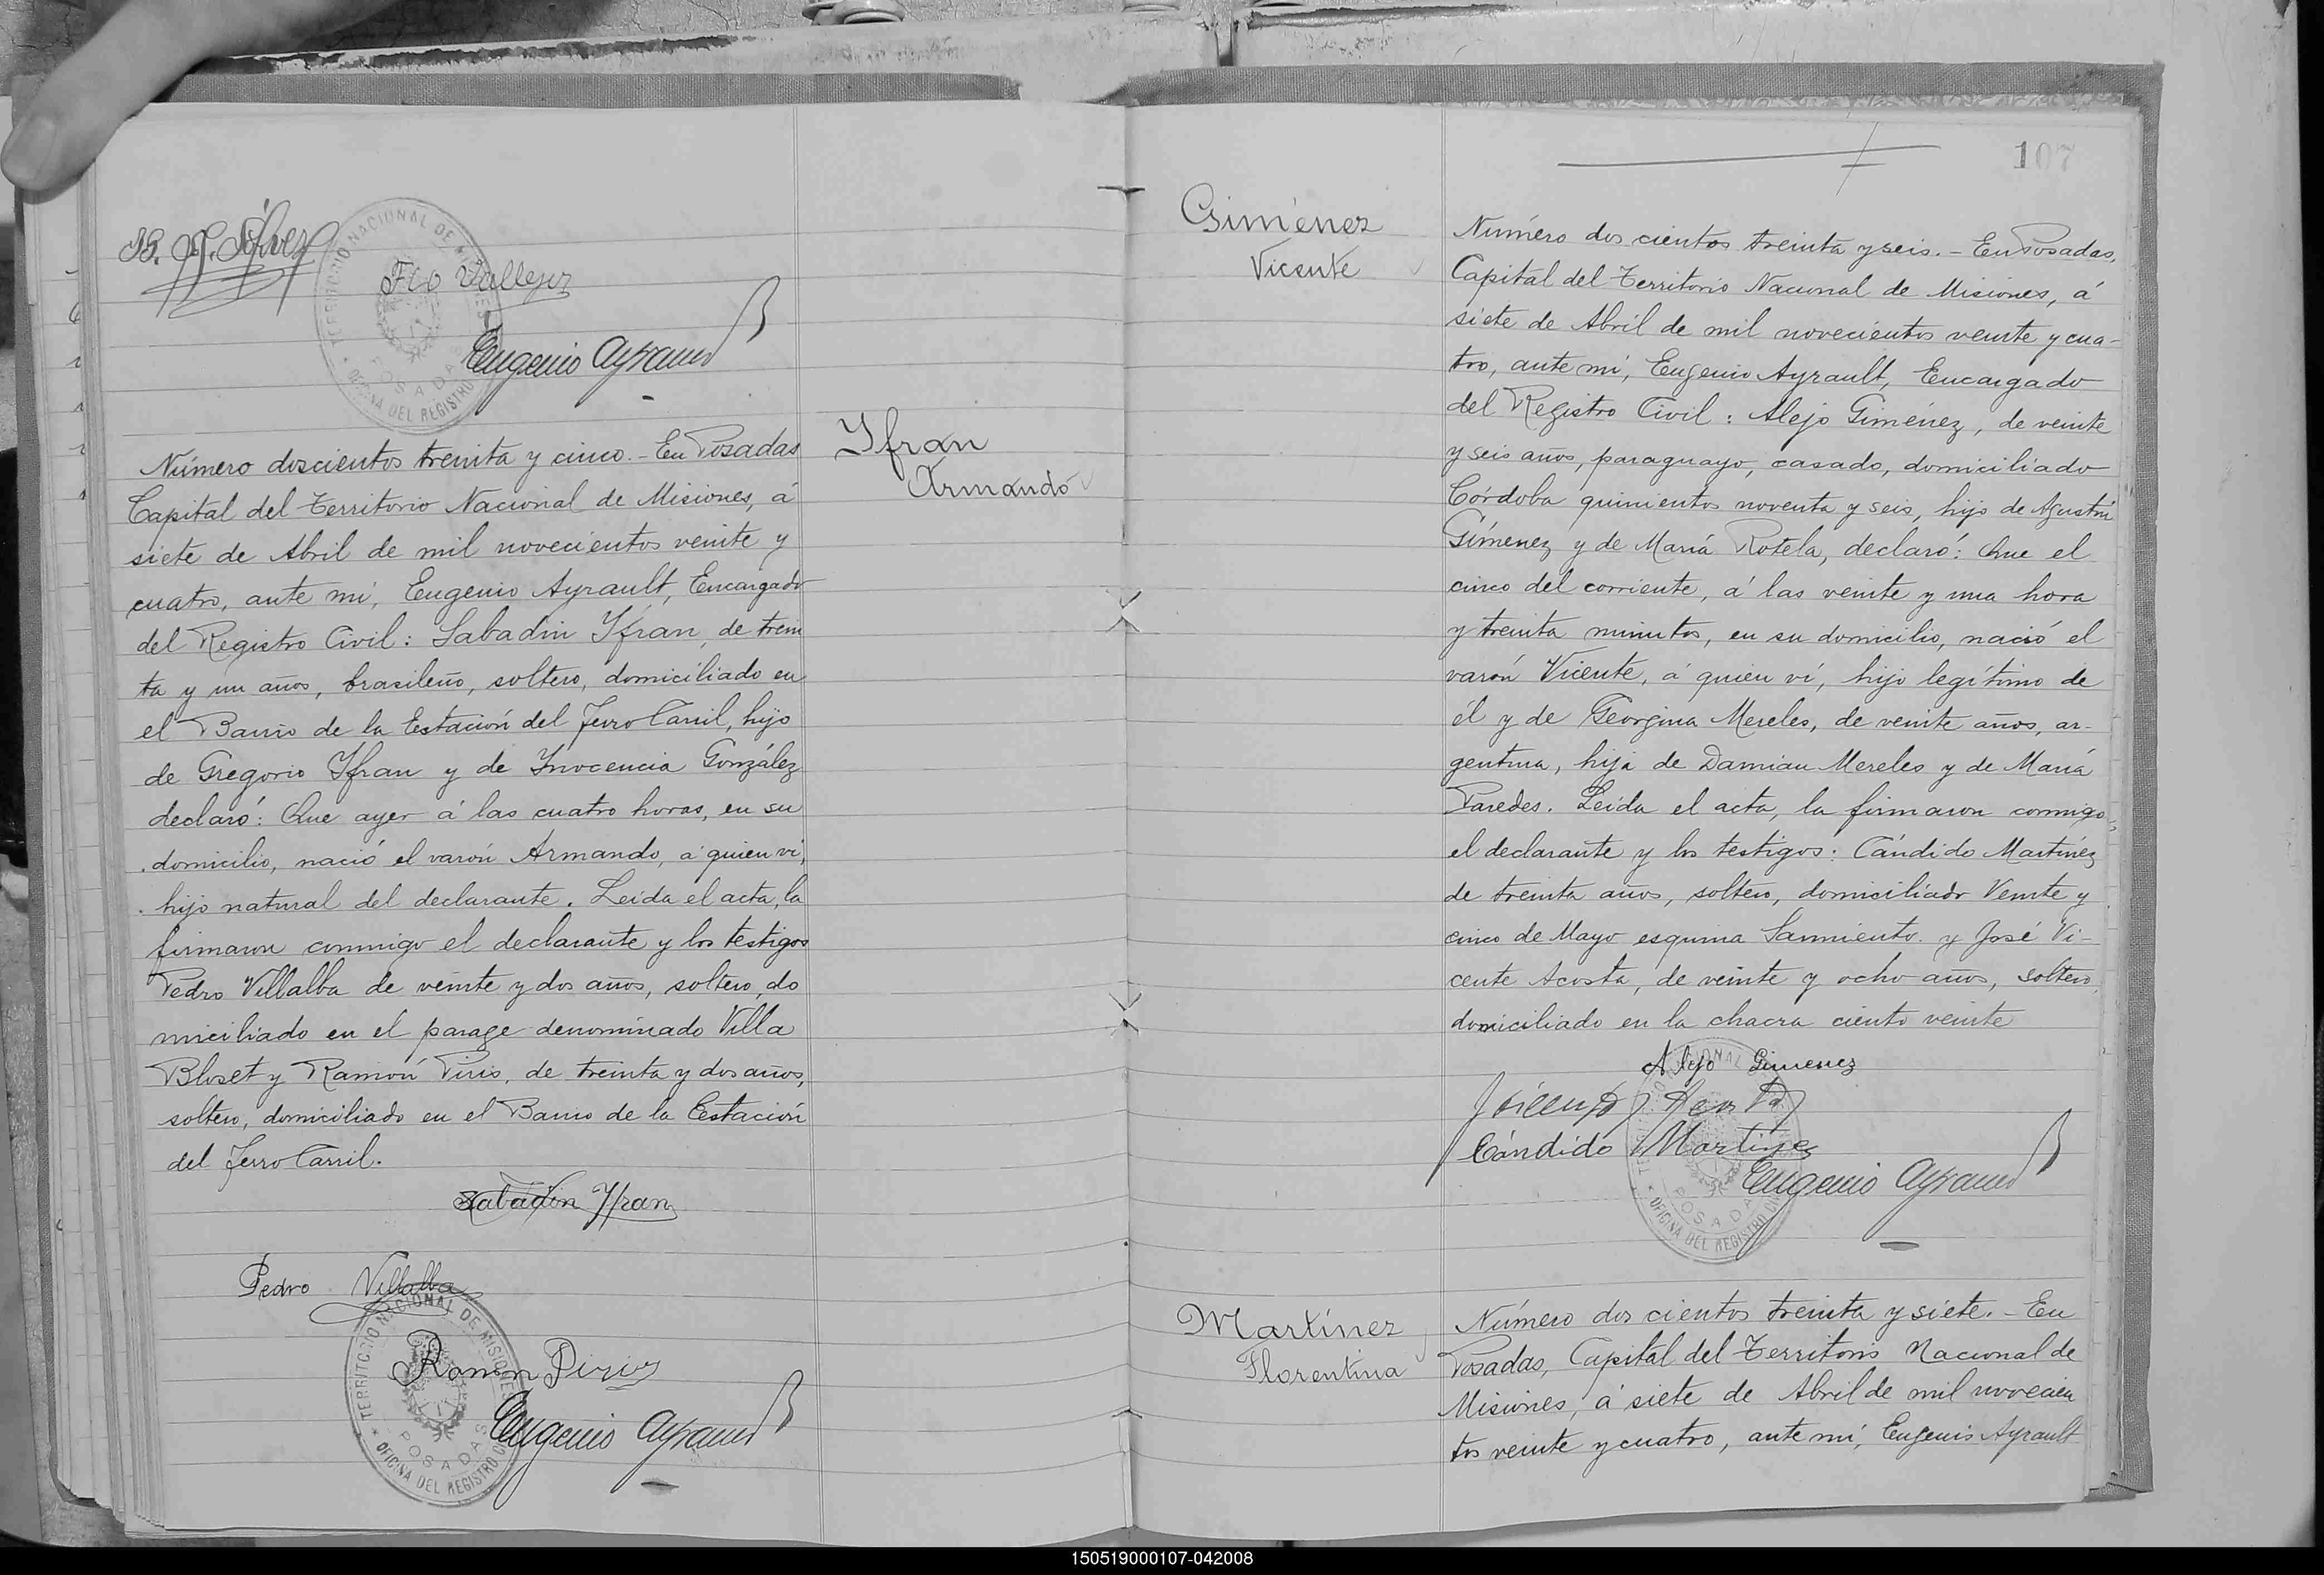 Fco Vallejos
Eugenio Ayrault
TERRITORIO NACIONAL DE MISIONES
POSADAS
OFICINA DEL REGISTRO
Número doscientos treinta y cinco.- En Posadas
Capital del Territorio Nacional de Misiones, á
siete de Abril de mil novecientos veinte y
cuatro, ante mí, Eugenio Ayrault, Encargado
del Registro Civil: Sabadin Yfran, de trein
ta y un años, brasileño, soltero, domiciliado en
el Barrio de la Estación del Ferro Carril, hijo
de Gregorio Yfran y de Ynocencia González
declaró: Que ayer á las cuatro horas, en su
domicilio, nació el varón Armando, a quien ví,
hijo natural del declarante. Leida el acta, la
firmaron conmigo el declarante y los testigos
Pedro Villalba de veinte y dos años, soltero, do
miciliado en el parage denominado Villa
Bloset y Ramón Piris, de treinta y dos años,
soltero, domiciliado en el Barrio de la Estación
del Ferro Carril.
Sabadin Yfran
Pedro Villalba
Ramon Piris
Eugenio Ayrault
TERRITORIO NACIONAL DE MISIONES
POSADAS
OFICINA DEL REGISTRO
Yfran
Armando
107
Giménez
Vicente
Número dos cientos treinta y seis.- En Posadas,
Capital del Territorio Nacional de Misiones, á
siete de Abril de mil novecientos veinte y cua-
tro, ante mí, Eugenio Ayrault, Encargado
del Registro Civil: Alejo Giménez, de veinte
y seis años, paraguayo, casado, domiciliado
Córdoba quinientos noventa y seis, hijo de Agustín
Gímenez y de María Rotela, declaró: Que el
cinco del corriente, á las veinte y una hora
y treinta minutos, en su domicilio, nació el
varón Vicente, á quien ví, hijo legítimo de
él y de Georgina Mereles, de veinte años, ar-
gentina, hija de Damian Mereles y de María
Paredes. Leída el acta, la firmaron conmigo
el declarante y los testigos: Cándido Martínez
de treinta años, soltero, domiciliado Veinte y
cinco de Mayo esquina Sarmiento y José Vi-
cente Acosta, de veinte y ocho años, soltero,
domiciliado en la chacra ciento veinte
Alejo Gimenez
Cándido Martinez
Eugenio Ayrault
POSADAS
OFICINA DEL REGISTRO
Martínez
Florentina
Número dos cientos treinta y siete.- En
Posadas, Capital del Territorio Nacional de
Misiones, á siete de Abril de mil novecien
tos veinte y cuatro, ante mí, Eugenio Ayrault
150519000107-042008